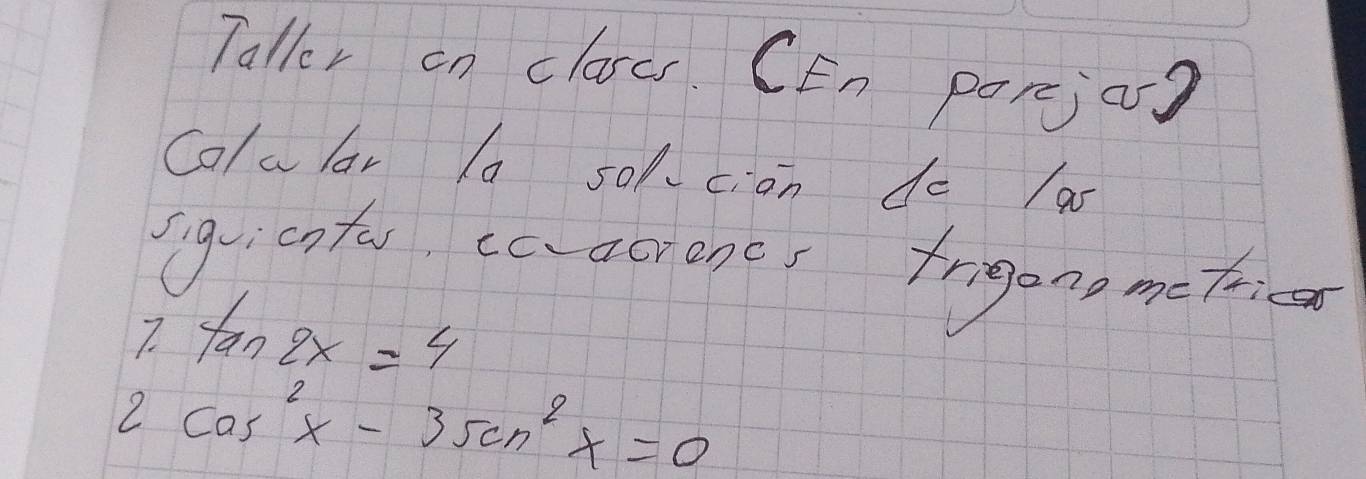 Taller en clases. (En parejas)
Calcular la solución de las
siguientes ecuaciones trigonometricas
1. tan 2x = 4
2 cos²x - 3 sen²x = 0